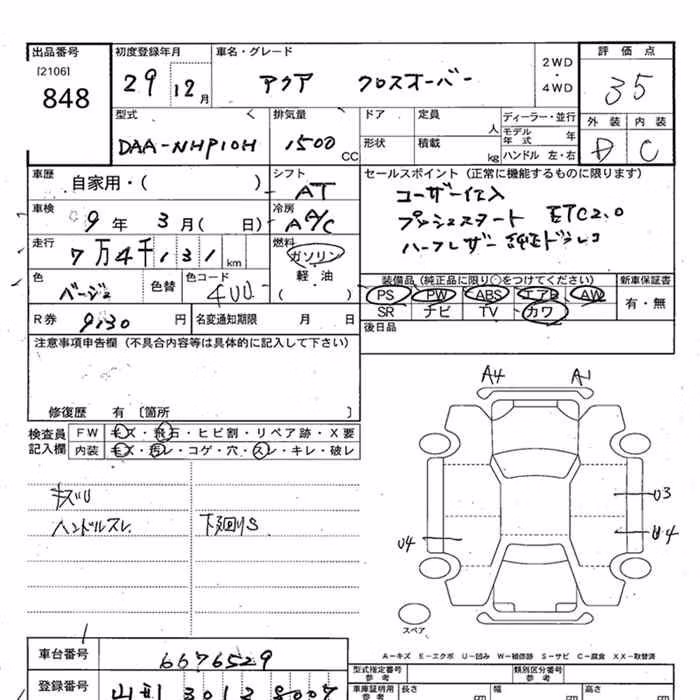 出品番号
[2106]
848
初度登録年月
29 12月
車名・グレード
アクア クロスオーバー
2WD
・
4WD
評価点
35
型式
DAA-NHP10H
排気量
1500 CC
ドア
形状
定員
人
積載
kg
ディーラー・並行
モデル年式 年
ハンドル 左・右
外装 内装
D C
車歴
自家用・( )
シフト
AT
車検
9年 3月( 日)
冷房
A/C
走行
7万4千131km
燃料
ガソリン
軽・油
( )
色
ベージュ
色替
色コード
4U0
R券
9130円
名変通知期限 月 日
セールスポイント(正常に機能するものに限ります)
ユーザー仕入
プッシュスタート ETC2.0
ハーフレザー 純正ドラレコ
装備品(純正品に限り○をつけてください)
PS PW ABS エアB AW
SR ナビ TV カワ
新車保証書
有・無
後日品
注意事項申告欄(不具合内容等は具体的に記入して下さい)
修復歴 有〔箇所 〕
検査員記入欄
FW キズ・飛石・ヒビ割・リペア跡・X要
内装 キズ・汚レ・コゲ・穴・スレ・キレ・破レ
キズU
ハンドルスレ 下廻りS
A4 A1
U3
U4
U4
スペア
A-キズ E-エクボ U-凹み W-補修跡 S-サビ C-腐食 XX-取替済
車台番号
6676529
登録番号
山形 301
型式指定番号
参考
類別区分番号
参考
車庫証明用
参考
長さ cm
幅 cm
高さ cm